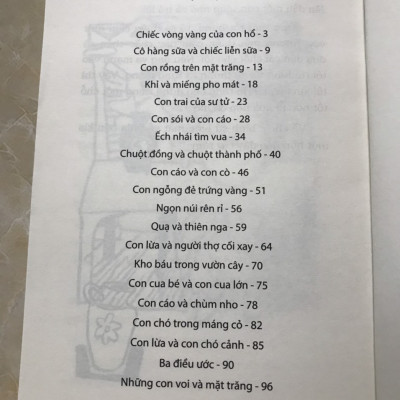 Chiếc vòng vàng của con hổ - 3
Cô hàng sữa và chiếc liễn sữa - 9
Con rồng trên mặt trăng - 13
Khỉ và miếng pho mát - 18
Con trai của sư tử - 23
Con sói và con cáo - 28
Ếch nhái tìm vua - 34
Chuột đồng và chuột thành phố - 40
Con cáo và con cò - 46
Con ngỗng đẻ trứng vàng - 51
Ngọn núi rên rỉ - 56
Quạ và thiên nga - 59
Con lừa và người thợ cối xay - 64
Kho báu trong vườn cây - 70
Con cua bé và con cua lớn - 75
Con cáo và chùm nho - 78
Con chó trong máng cỏ - 82
Con lừa và con chó cảnh - 85
Ba điều ước - 90
Những con voi và mặt trăng - 96